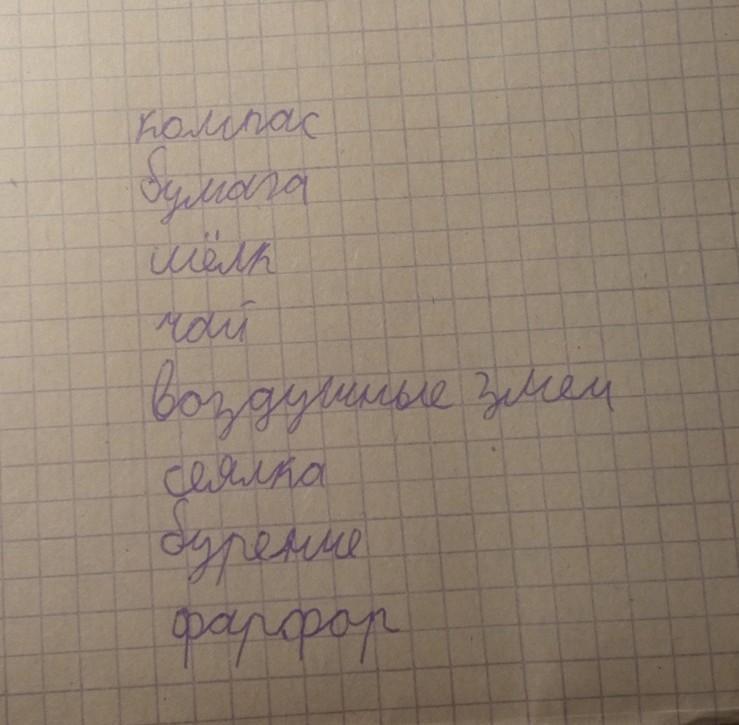 компас
бумага
шёлк
чай
воздушные змеи
сеялка
бурение
фарфор